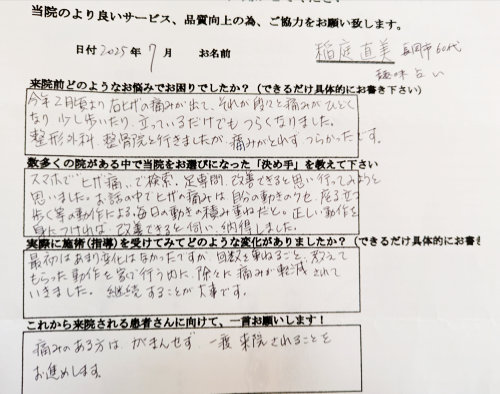 当院のより良いサービス、品質向上の為、ご協力をお願い致します。
日付 2025年 7月 お名前 稲庭直美 長岡市 60代
趣味 占い
来院前どのようなお悩みでお困りでしたか？（できるだけ具体的にお書き下さい）
今年2月頃より右ヒザの痛みが出て、それが段々と痛みがひどく
なり少し歩いたり、立っているだけでもつらくなりました。
整形外科、整骨院と行きましたが、痛みがとれず、つらかったです。
数多くの院がある中で当院をお選びになった「決め手」を教えて下さい
スマホで"ヒザ痛"で検索、足専門、改善できると思い行ってみようと
思いました。お話の中でヒザの痛みは、自分の動きのクセ、座る立つ
歩く等の動作による、毎日の動きの積み重ねだと。正しい動作を
身につければ、改善できると伺い、納得しました。
実際に施術(指導)を受けてみてどのような変化がありましたか？（できるだけ具体的にお書き
最初はあまり変化はなかったですが、回数を重ねること、教えて
もらった動作を家で行う内に、徐々に痛みが軽減されて
いきました。継続することが大事です。
これから来院される患者さんに向けて、一言お願いします！
痛みのある方は、がまんせず、一度来院されることを
お進めします。